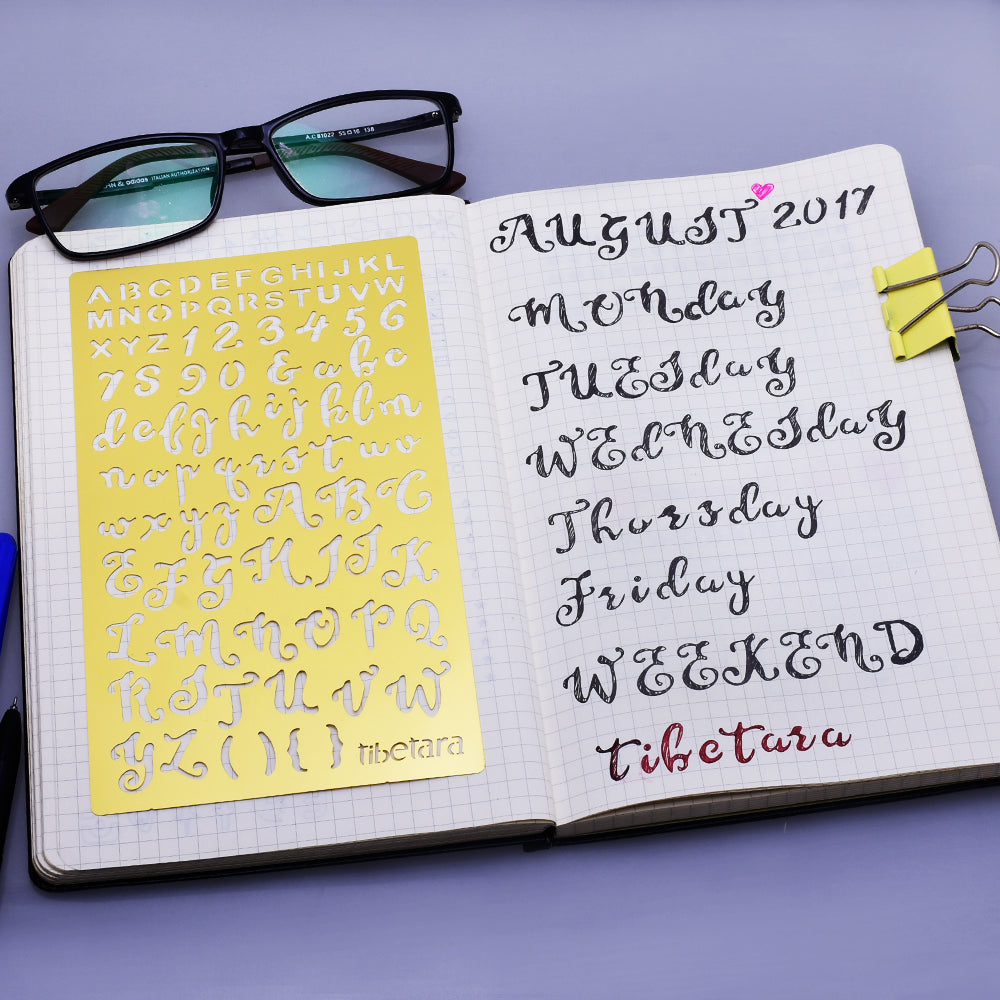 A.C 81022 55□16 138
& adidas ITALIAN AUTHORIZATION
ABCDEFGHIJKL
MNOPQRSTUVW
XYZ 1 2 3 4 5 6
7 8 9 0 & a b c
d e f g h i j k l m
n o p q r s t u v
w x y z A B C
E F G H I J K
L M N O P Q
R S T U V W
Y Z ( ) { }
tibetara
AUGUST 2017
MONday
TUESdaY
WEdNESdaY
Thursday
Friday
WEEKEND
tibetara